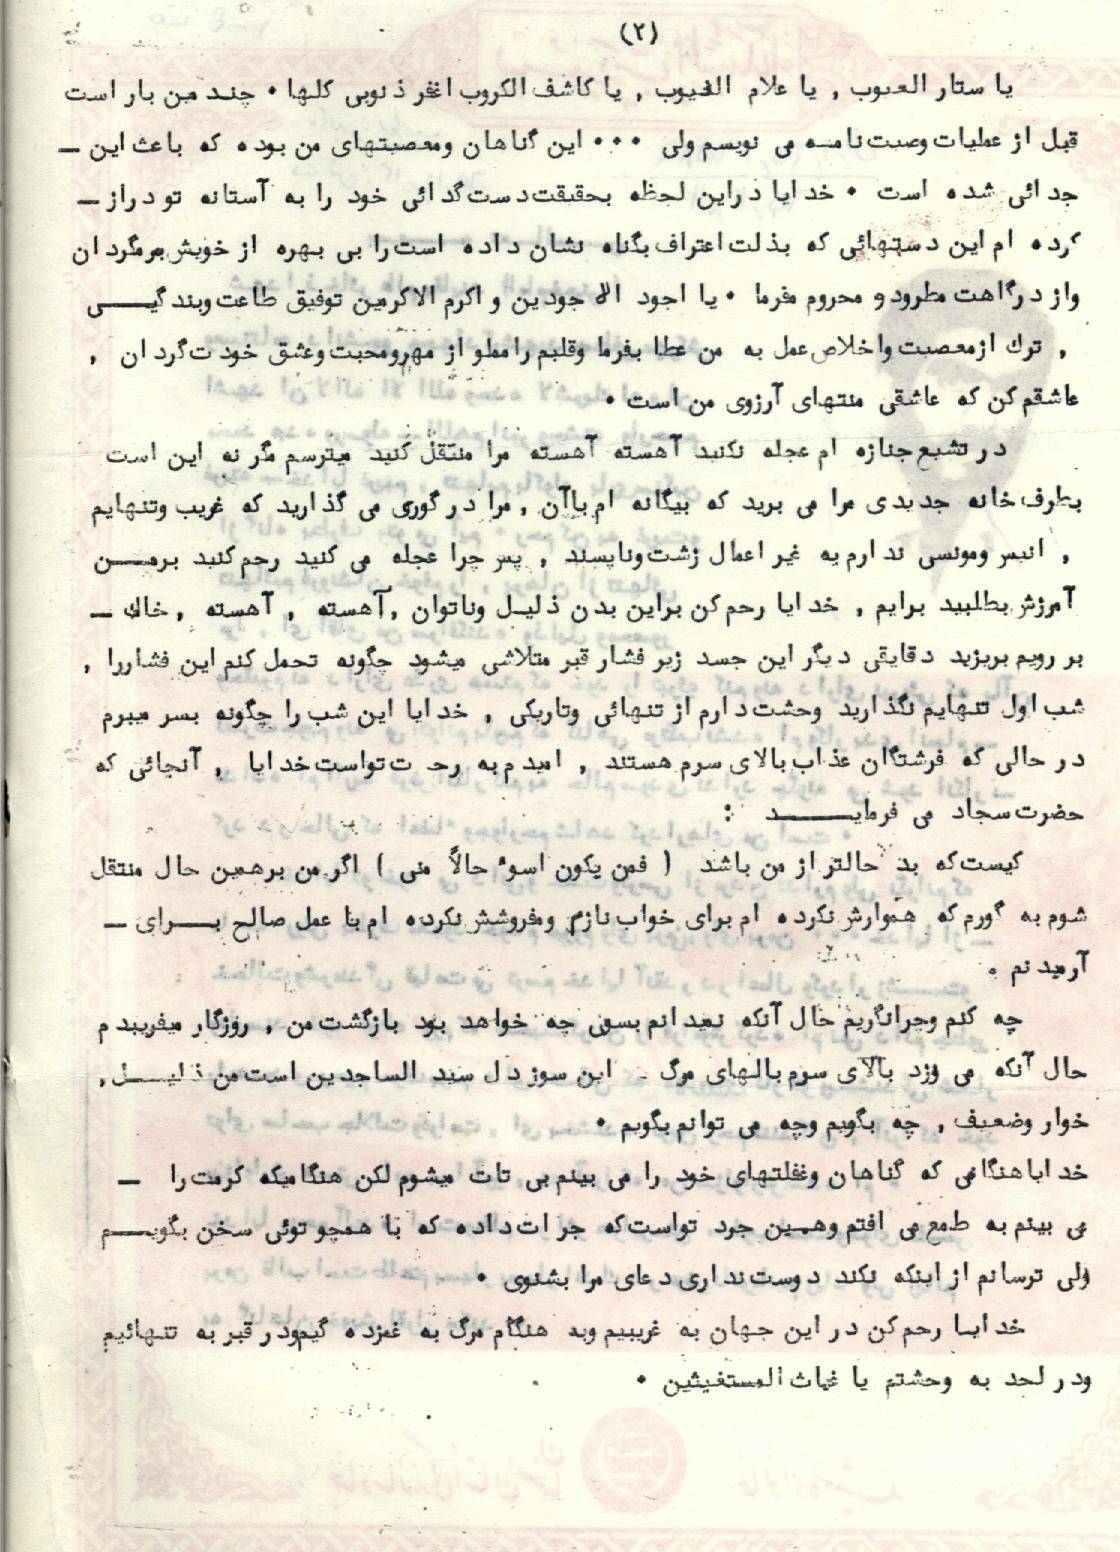 (۲)
یا ستار العیوب , یا علام الغیوب , یا کاشف الکروب اغفر ذنوبی کلها • چند مین بار است
قبل از عملیات وصیت نامه می نویسم ولی ••• این گناهان ومعصیتهای من بوده که باعث این ــ
جدائی شده است • خدایا دراین لحظه بحقیقت دست گدائی خود را به آستانه تو دراز ــ
کرده ام این دستهائی که بذلت اعتراف بگناه نشان داده است را بی بهره از خویش برمگردان
واز درگاهت مطرود و محروم مفرما • یا اجود الاجودین و اکرم الاکرمین توفیق طاعت وبندگیـــی
, ترک ازمعصیت واخلاص عمل به من عطا بفرما وقلبم را مملو از مهرومحبت وعشق خودت گردان ,
عاشقم کن که عاشقی منتهای آرزوی من است •
در تشیع جنازه ام عجله نکنید آهسته آهسته مرا منتقل کنید میترسم مگر نه این است
بطرف خانه جدیدی مرا می برید که بیگانه ام باآن , مرا در گوری می گذارید که غریب وتنهایم
, انیس ومونسی ندارم به غیر اعمال زشت وناپسند , پس چرا عجله می کنید رحم کنید برمـــن
آمرزش بطلبید برایم , خدایا رحم کن براین بدن ذلیل وناتوان ,آهسته , آهسته , خاک ــ
بر رویم بریزید دقایقی دیگر این جسد زیر فشار قبر متلاشی میشود چگونه تحمل کنم این فشاررا ,
شب اول تنهایم نگذارید وحشت دارم از تنهائی وتاریکی , خدایا این شب را چگونه بسر میبرم
در حالی که فرشتگان عذاب بالای سرم هستند , امیدم به رحمت تواست خدایا , آنجائی که
حضرت سجاد می فرمایـــد :
کیست که بد حالتر از من باشد ( فمن یکون اسوء حالاً منی ) اگر من برهمین حال منتقل
شوم به گورم که هموارش نکرده ام برای خواب نازم ومفروشش نکرده ام با عمل صالح بـــرای ــ
آرمیدنم .
چه کنم وچرانگریم حال آنکه نمیدانم بسوی چه خواهد بود بازگشت من , روزگار میفریبدم
حال آنکه می وزد بالای سرم بالهای مرگ . این سوز دل سید الساجدین است من ذلیـــل,
خوار وضعیف , چه بگویم وچه می توانم بگویم •
خدایاهنگامی که گناهان وغفلتهای خود را می بینم بی تاب میشوم لکن هنگامیکه کرمت را ــ
می بینم به طمع می افتم وهمین جود تواست که جرات داده که با همچو توئی سخن بگویـــم
ولی ترسانم از اینکه نکند دوست نداری دعای مرا بشنوی •
خدایا رحم کن در این جهان به غریبیم وبه هنگام مرگ به غمزده گیم‌ودر قبر به تنهائیم
ودر لحد به وحشتم یا غیاث المستغیثین •